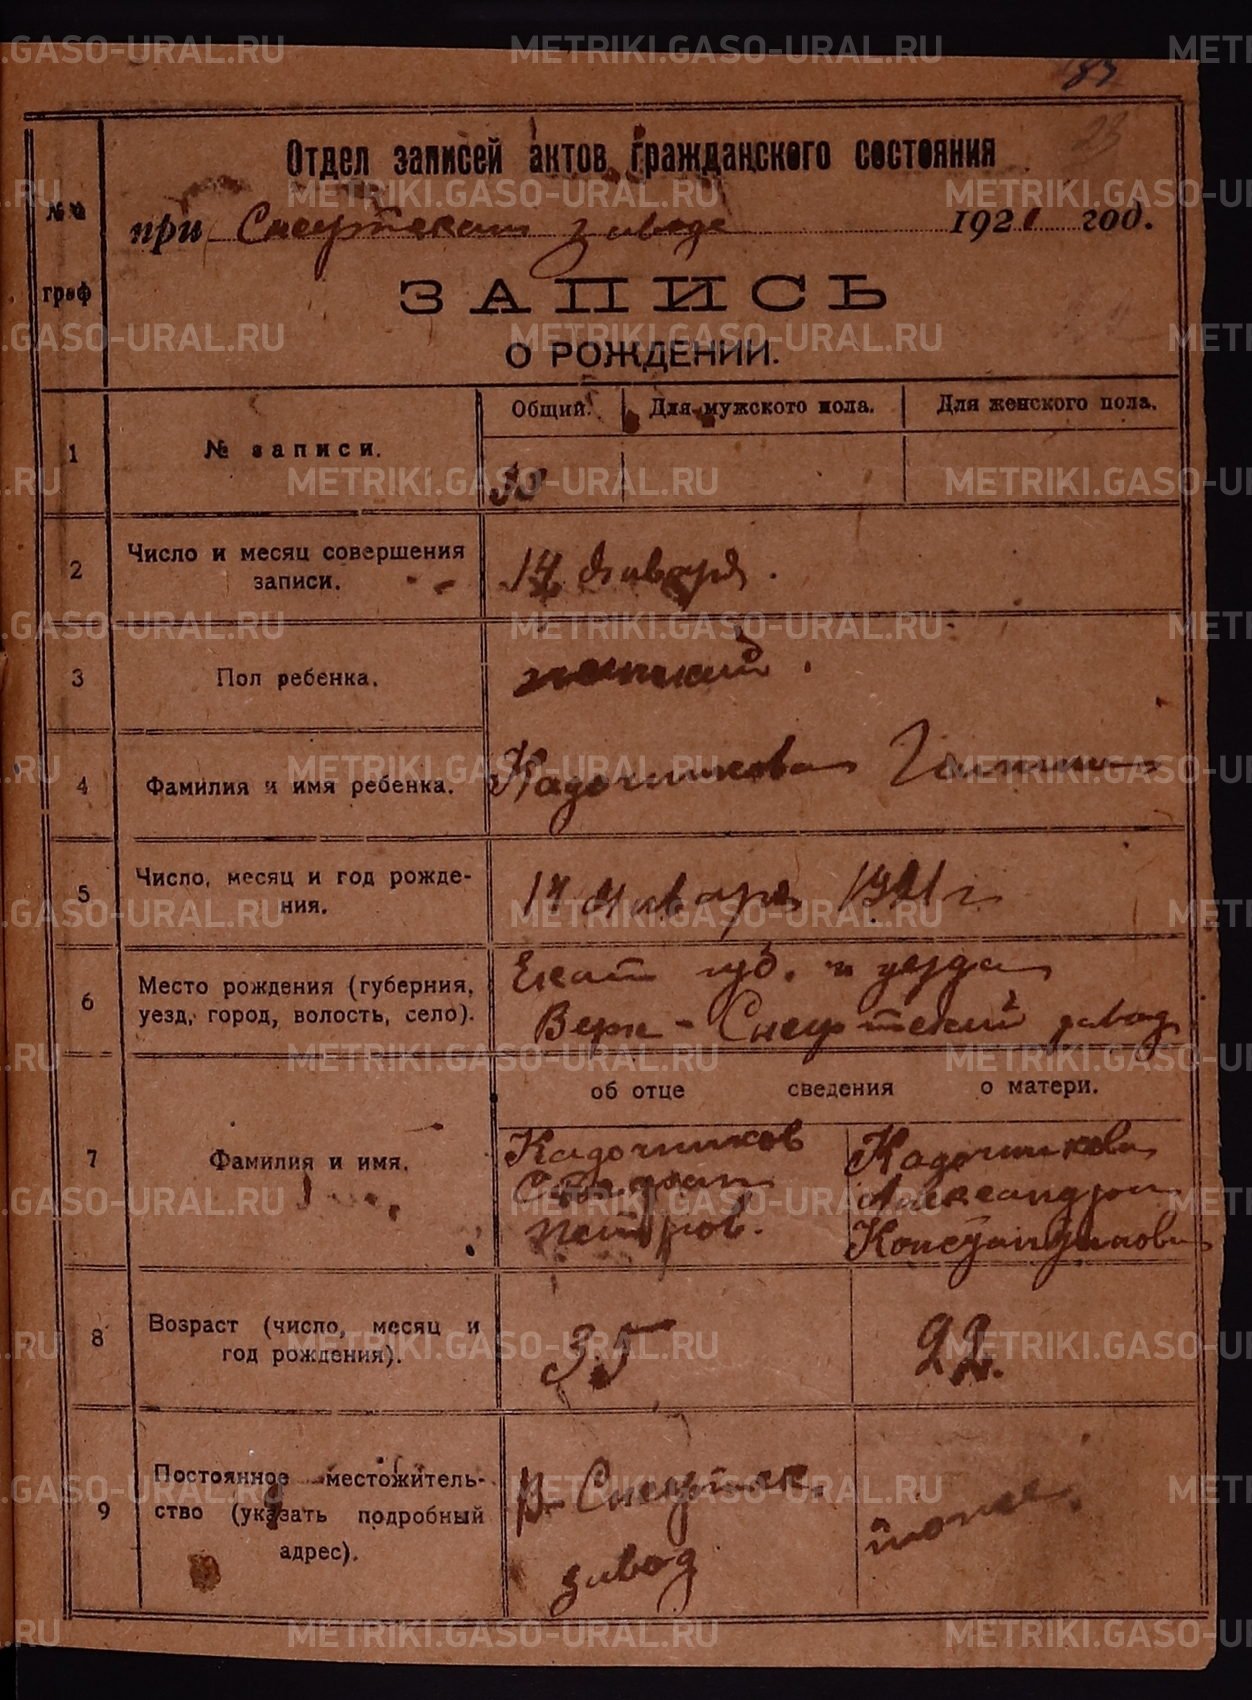 83
23
Отдел записей актов гражданского состояния
№ №
граф
при Сысертском заводе 1921 год.
ЗАПИСЬ
О РОЖДЕНИИ.
Общий. Для мужского пола. Для женского пола.
1 № записи. 30
2 Число и месяц совершения
записи.
14 Января.
3 Пол ребенка. женский.
4 Фамилия и имя ребенка. Кадочникова Галина
5 Число, месяц и год рожде-
ния.
14 Января 1921 г.
6 Место рождения (губерния,
уезд, город, волость, село).
Екат губ. и уезда
Верх-Сысертский завод
об отце сведения о матери.
7 Фамилия и имя.
Кадочников
Степан
Петров.
Кадочникова
Александра
Константинова
8 Возраст (число, месяц и
год рождения).
35 22.
9 Постоянное местожитель-
ство (указать подробный
адрес).
В-Сысертск.
завод
тоже.
METRIKI.GASO-URAL.RU